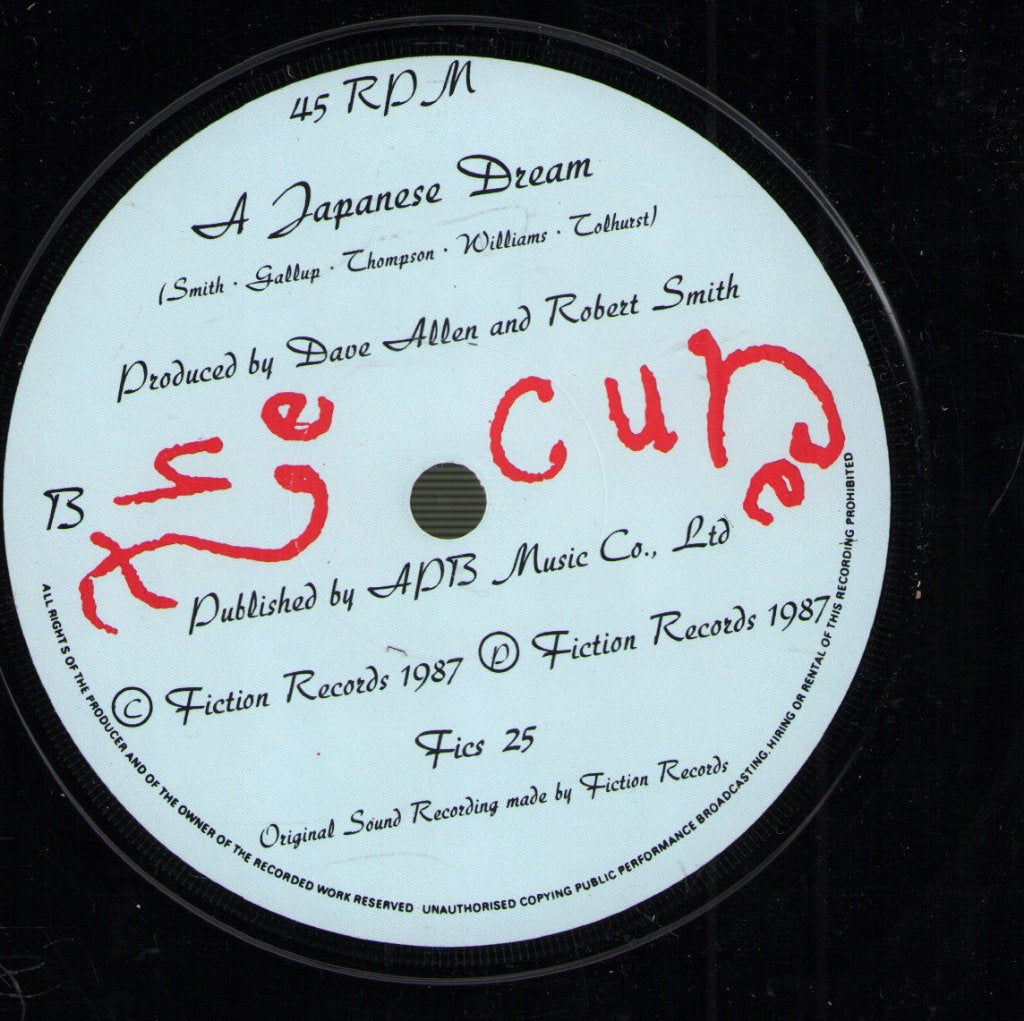 45 RPM
A Japanese Dream
(Smith · Gallup · Thompson · Williams · Tolhurst)
Produced by Dave Allen and Robert Smith
the cure
B
Published by APB Music Co., Ltd
© Fiction Records 1987 ℗ Fiction Records 1987
Fics 25
Original Sound Recording made by Fiction Records
ALL RIGHTS OF THE PRODUCER AND OF THE OWNER OF THE RECORDED WORK RESERVED UNAUTHORISED COPYING PUBLIC PERFORMANCE BROADCASTING. HIRING OR RENTAL OF THIS RECORDING PROHIBITED